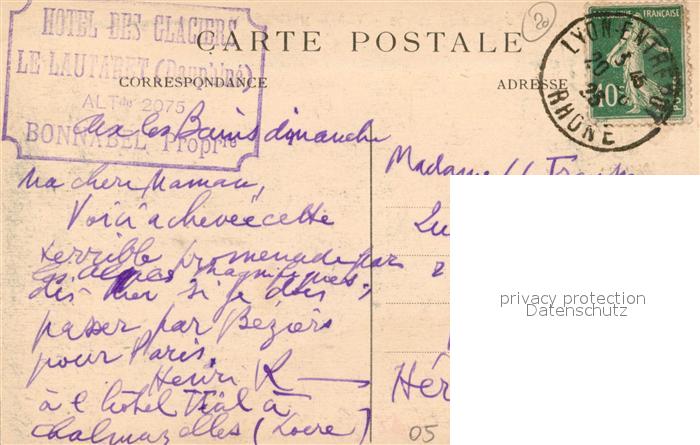 HOTEL DES GLACIERS
LE LAUTARET (Dauphiné)
ALTde 2075
BONNABEL Proprre
CARTE POSTALE
CORRESPONDANCE
ADRESSE
20
FRANÇAISE
10
LYON-ENTREPOT
RHONE
Aix les Bains dimanche
Ma chère Maman,
Voici achevée cette
terrible promenade par
les alpes magnifiques,
dis-moi si je dois
passer par Béziers
pour Paris.
Henri R
à l'hôtel Vial à
Chalmazelles (Loire)
Madame
Hér
privacy protection
Datenschutz
05